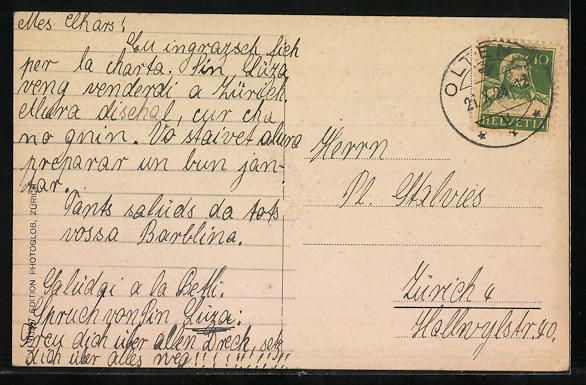 Mes chars!
Eu ingrazch fich
per la charta. Sin Lüza
veng venderdi a Zürich.
Allura dischal, cur cha
no gnin. Vo staivet alura
preparar un bun jan-
tar.
Tants salüds da tots
vossa Barblina.
Salüdai a la Betti.
Spruch von Sin Lüza:
Freu dich über allen Dreck, setz
dich über alles weg!!!!!!!!!
EDITION PHOTOGLOB, ZÜRICH
OLTEN
10
HELVETIA
Herrn
Pl. Stalvies
Zürich 4
Hallwylstr. 40.